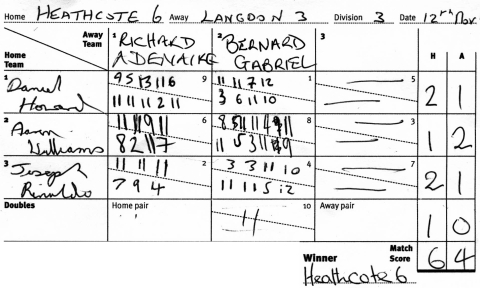 Home HEATHCOTE 6 Away LANGDON 3 Division 3 Date 12th Nov
Away Team 1 RICHARD ADENAIKE 2 BERNARD GABRIEL 3
Home Team H A
1 Daniel Howard
9 5 13 11 6 9
11 11 11 2 11
11 11 7 12 1
3 6 11 10
5
2 1
2 Aaron Williams
6
8 2 11 7
8
3
1 2
3 Joseph Rinaldo
11 11 11 2
7 9 4
3 3 11 10 4
11 11 5 12
7
2 1
Doubles Home pair 10 Away pair
1 0
Winner Match Score 6 4
Heathcote 6